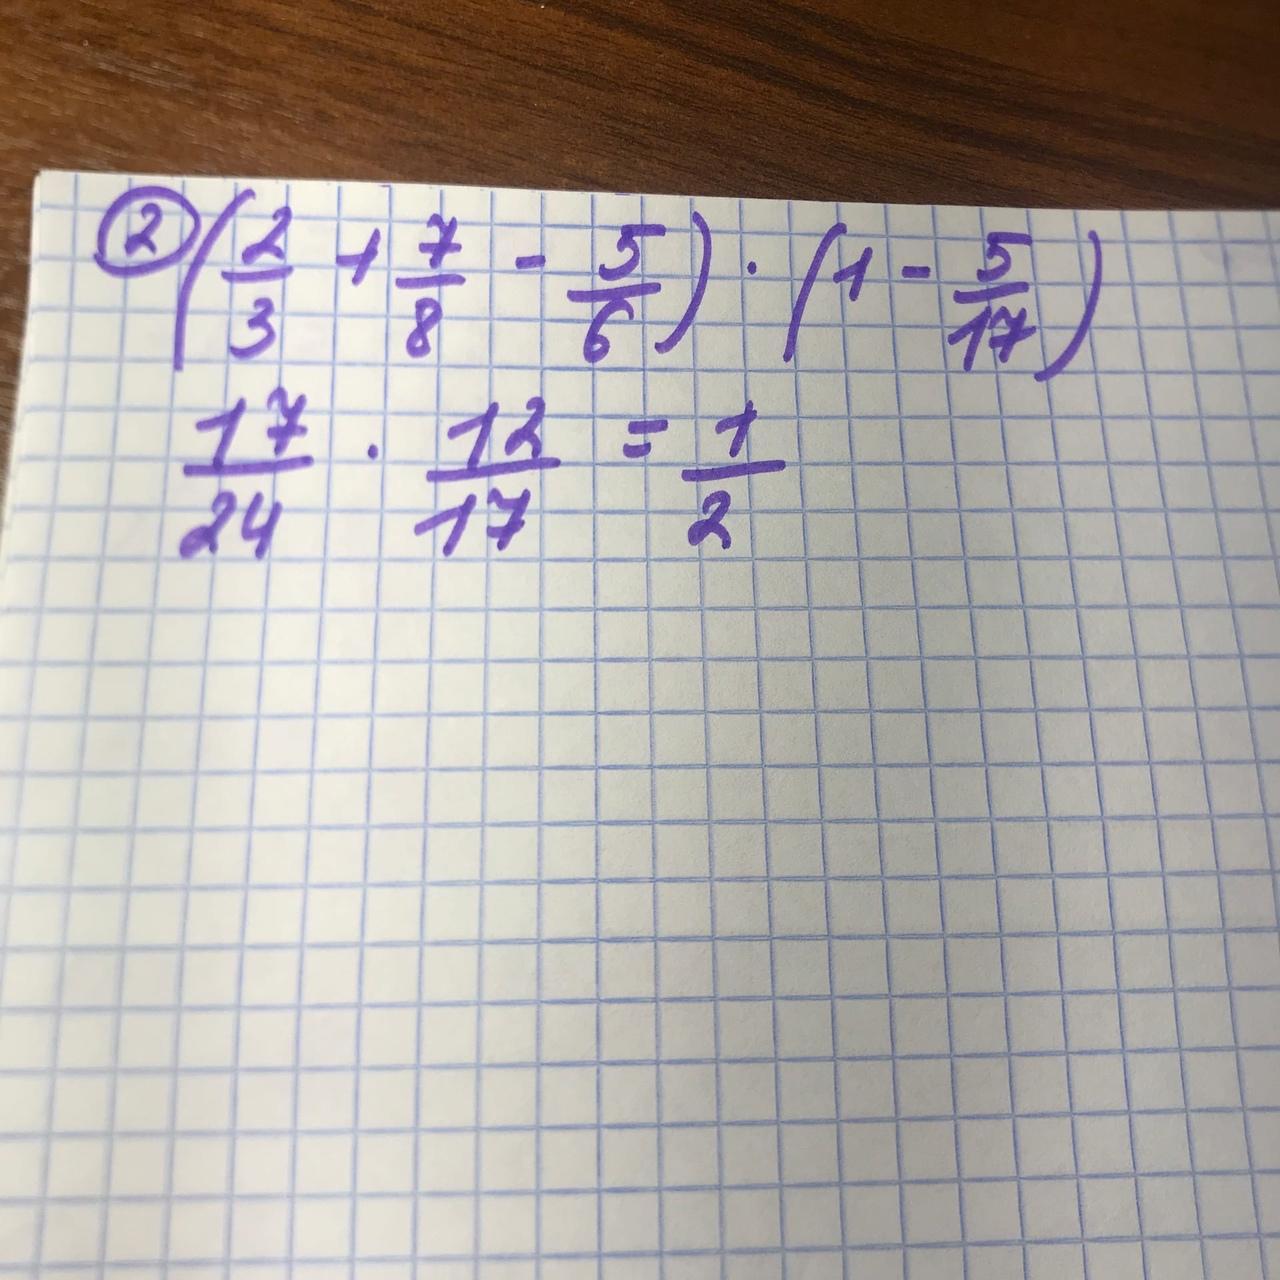 ② (2/3 + 7/8 - 5/6) · (1 - 5/17)
17/24 · 12/17 = 1/2